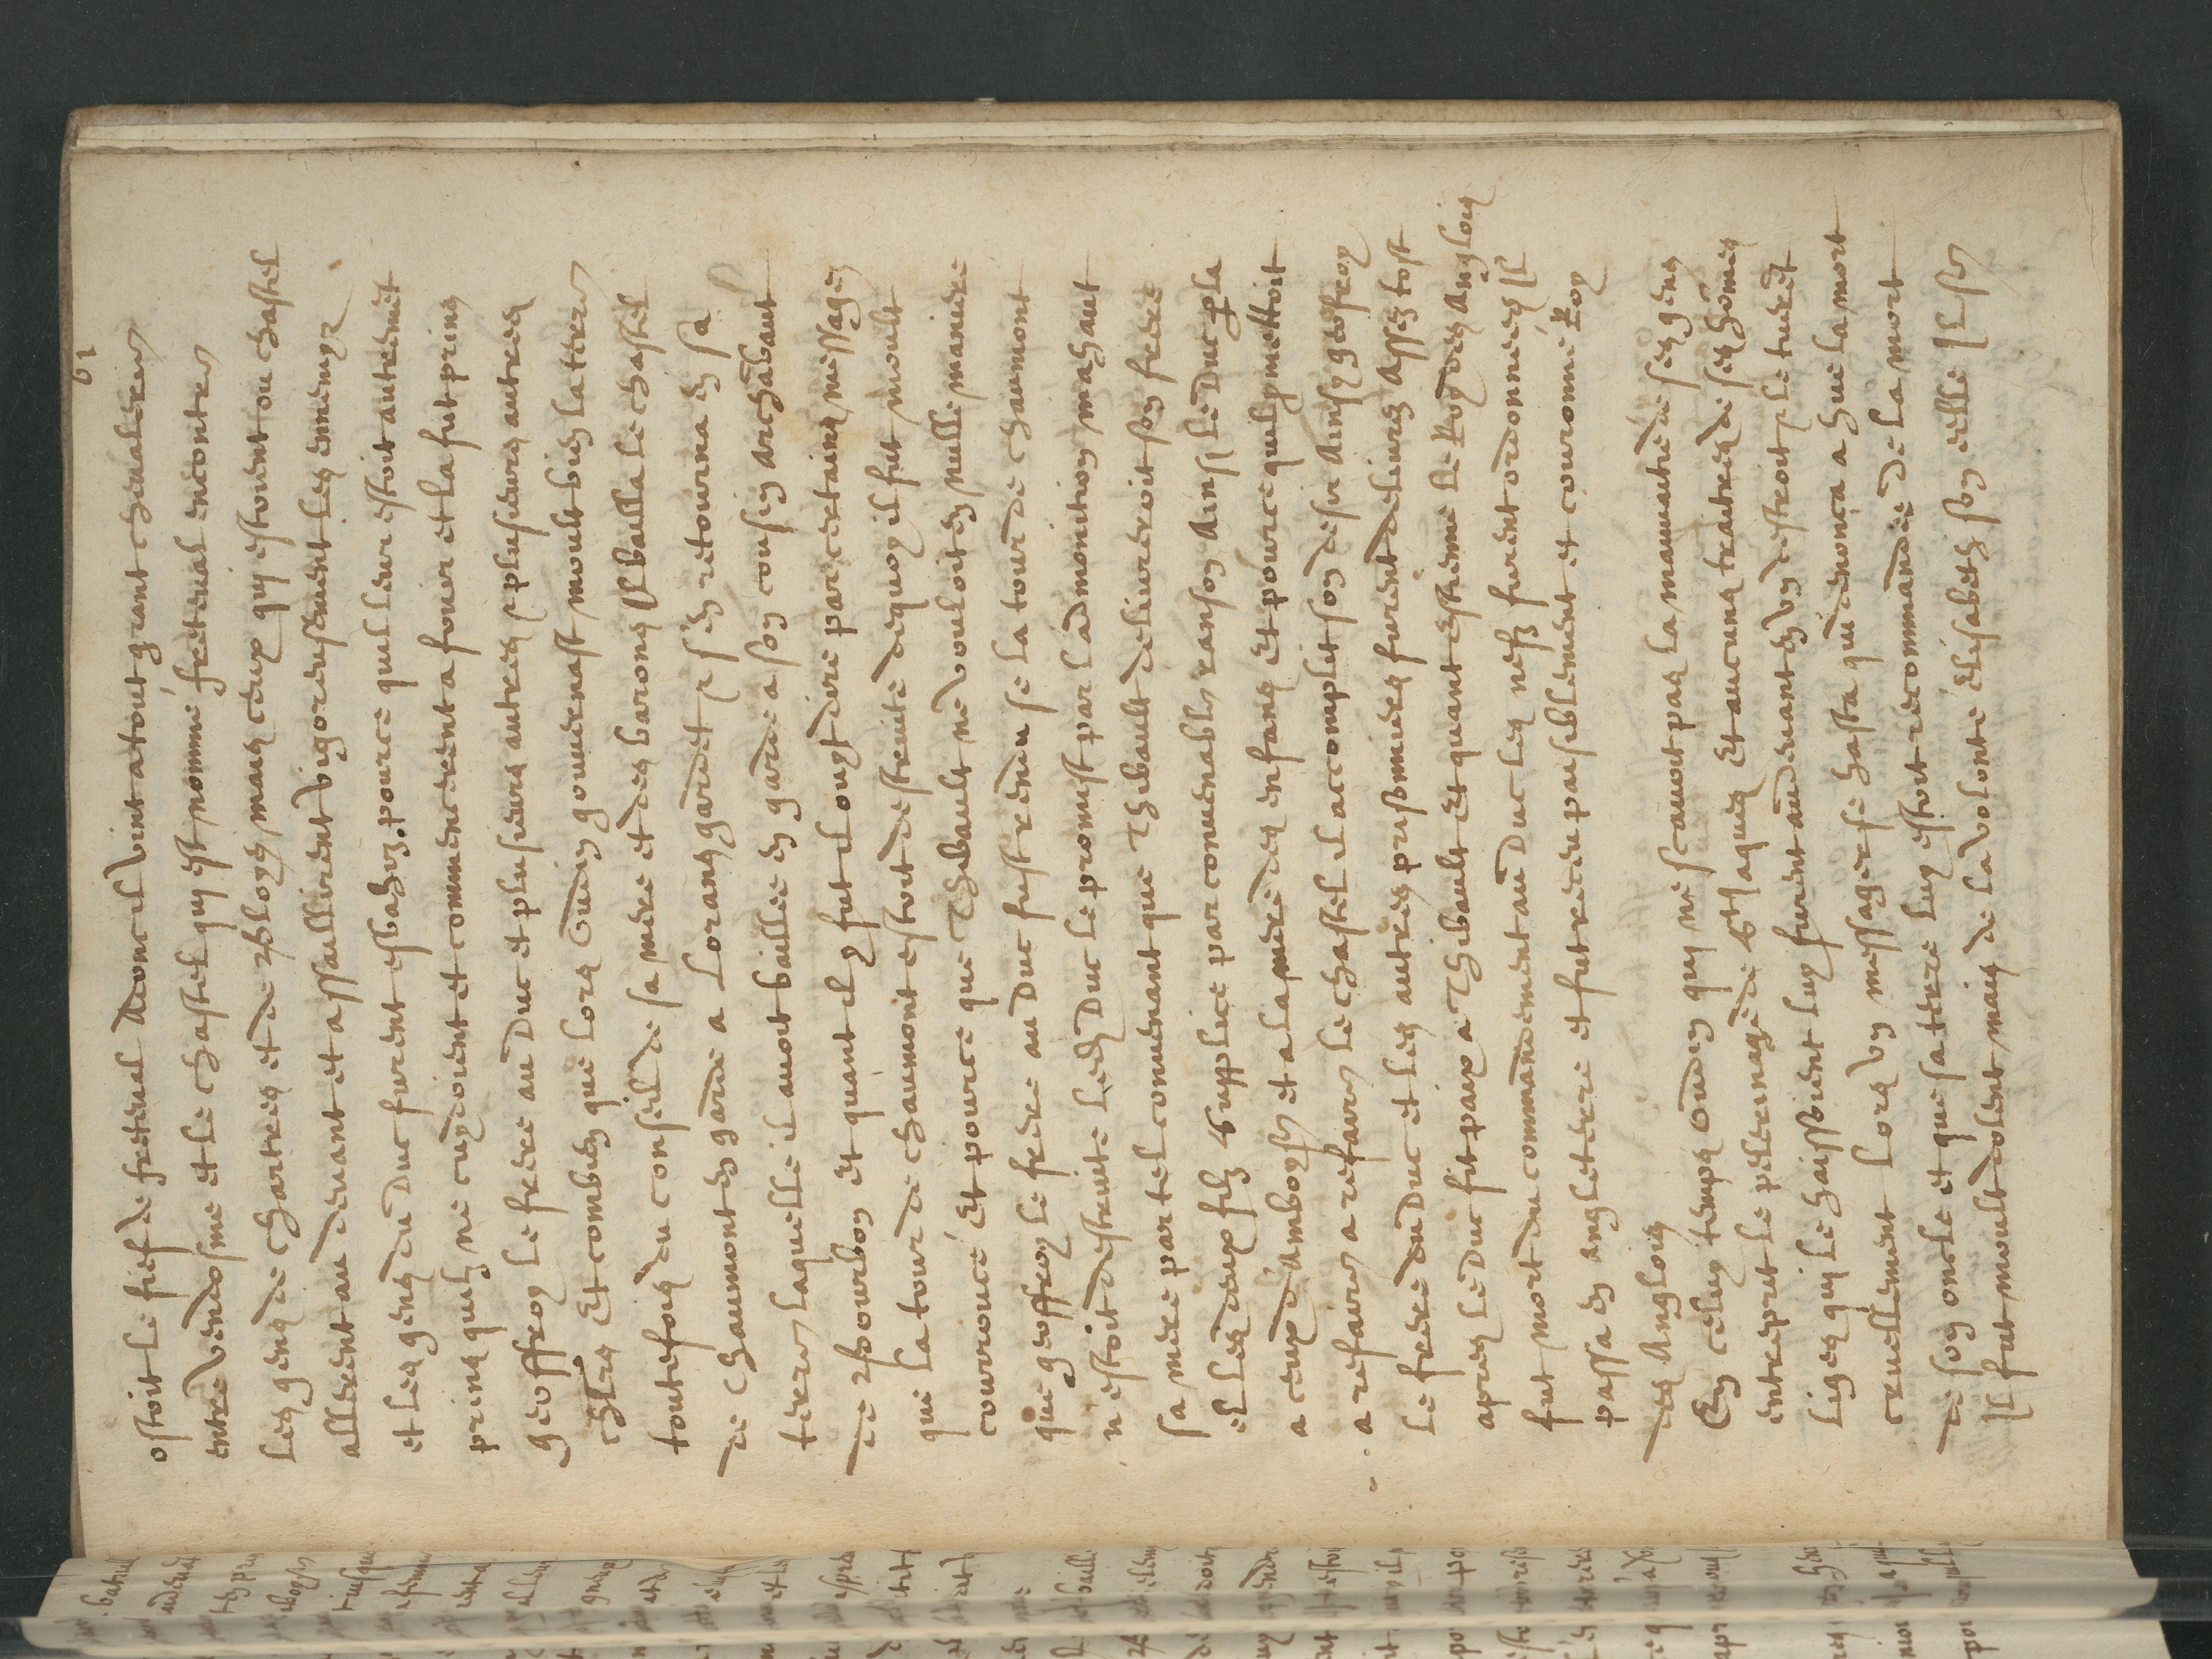 61
estoit le fief de freteual Adonc il vint atout grant cheualerie
entre vendosme et le chastel quy est nomme freteual encontre
les gens de chartres et de bloys mais ceux quy estoient ou chastel
allerent au deuant et assaillirent vigoreusement les ennemys
et les gens du Duc furent esbahiz pource quil leur estoit autrement
prins quilz ne cuydoient et commencerent a fouir et la fut prins
geoffroy le frere au Duc et plusieurs autres & plusieurs autres
Et combien que lors Oudin gouuernast moult bien la terre
toutefois du conseil de sa mere et des barons bailla le chastel
de chaumont en garde a lorans gardet & sen retourna en sa
terre laquelle il auoit baillee en garde a son cousin archabaut
de bourbon Et quant il y fut il ouyt dire par certains messages
que la tour de chaumont estoit destruite dequoy il fut moult
courrouce Et pource que Thibault ne vouloit en nulle maniere
que geoffroy le frere au Duc fust rendu se la tour de chaumont
n estoit destruite ledit Duc le promist par ladmonition mahaut
sa mere par tel conuenant que Thibault deliureroit son frere
et les deux filz supplice par conuenable ranson Ainsi le Duc
a ceux d'amboyse et a la mere des enfans Et pource quil promettoit
a refaire a refaire le chastel il accomplit son desir Ainsy geofroy
le frere du Duc et les autres prisonniers furent deliurez Assez tost
apres le Duc fit paix a Thibault Et quant estienne le Roy des Anglois
fut mort du commandement au Duc les nefs furent ordonnees Il
passa en angleterre et fut receu paisiblement et couronne Roy
des Anglois
En celuy temps Oudin quy ne scauoit pas la mauuaitie de ses gens
entreprit le pelerinage de s Iaques Et aucuns traitres de ses homes
liges qui le haissoient luy furent au deuant en vn destroit & le tueret
cruellement Lors vn messager se hasta qui denonca a hue la mort
de son oncle et que sa terre luy estoit recommandee de la mort
Il fut moult dolent mais de la volonte elisabeth son elle Il